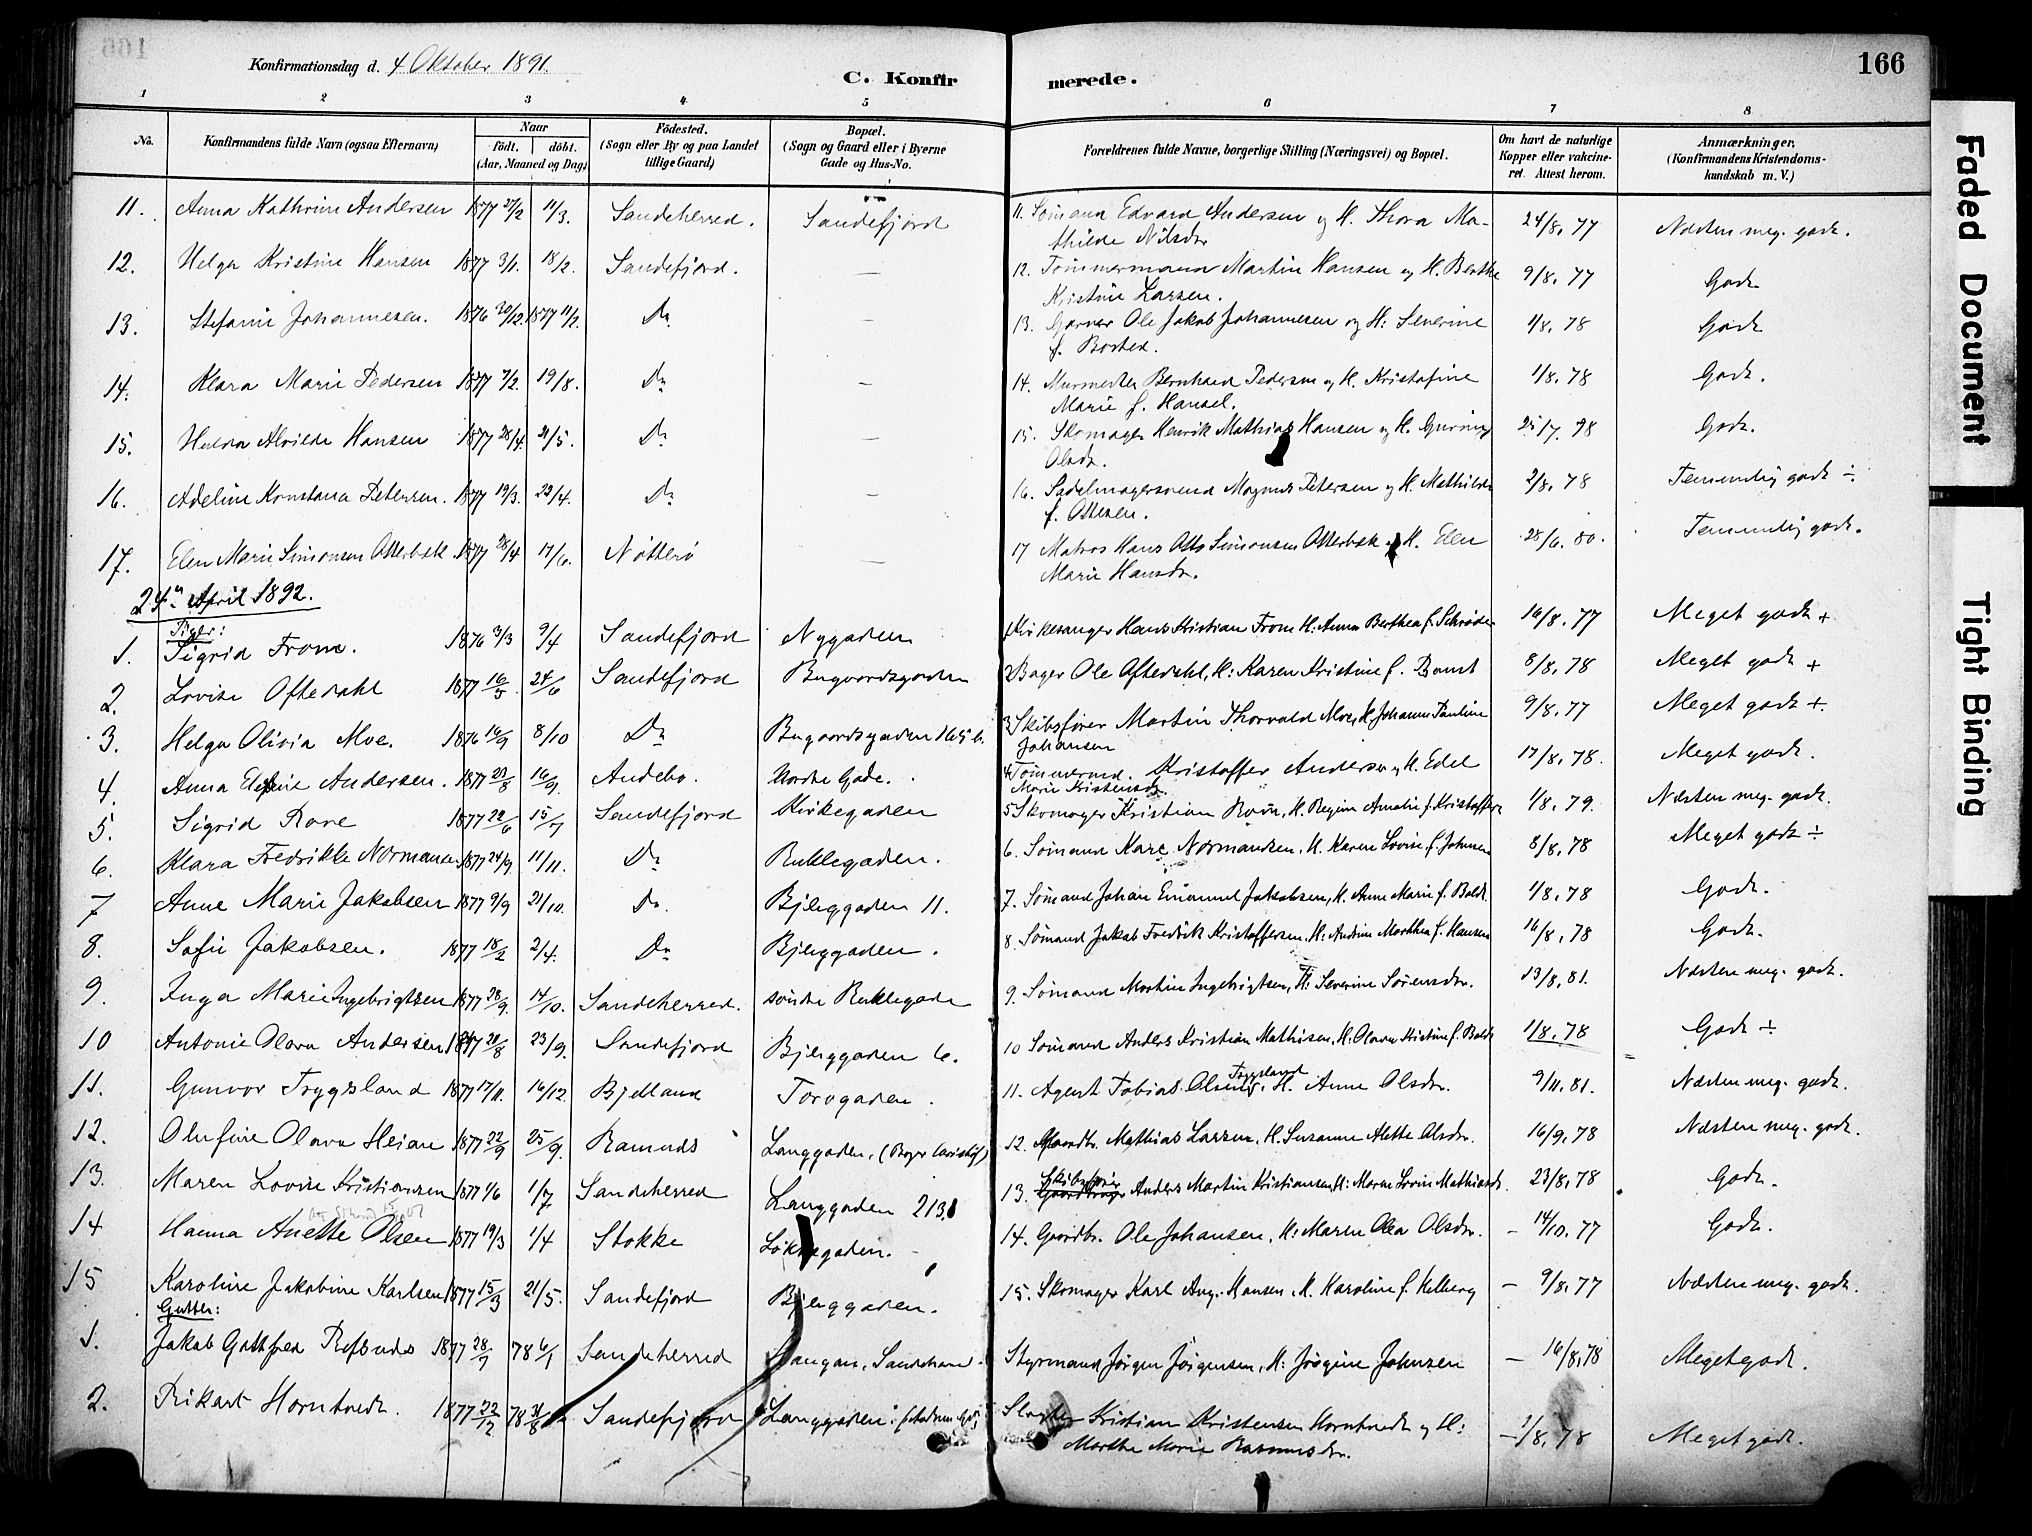 166
Konfirmationsdag d. 4 Oktober 1891.
C. Konfirmerede.
1 2 3 4 5 6 7 8
No.
Konfirmandens fulde Navn (ogsaa Efternavn)
Naar
født. døbt.
(Aar, Maaned og Dag)
Fødested.
(Sogn eller By og paa Landet tillige Gaard)
Bopæl.
(Sogn og Gaard eller i Byerne Gade og Hus-No.
Forældrenes fulde Navne, borgerlige Stilling (Næringsvei) og Bopæl.
Om havt de naturlige Kopper eller vakcineret. Attest herom.
Anmærkninger.
(Konfirmandens Kristendomskundskab m. V.)
11. Anna Kathrine Andersen 1877 27/2 11/3. Sandeherred. Sandefjord 11. Sømand Edvard Andersen og H. Thora Mathilde Nilsdr 24/8, 77 Næsten meg. godt.
12. Helga Kristine Hansen 1877 3/1. 18/2. Sandefjord. — 12. Tømmermand Martin Hansen og H. Berthe Kristine Larsen. 9/8, 77 Godt
13. Stefanie Johannesen. 1876 20/12. 1877 11/2. Do — 13. Garver Ole Jakob Johannesen og H: Severine f. Rosted. 1/8, 78 Godt
14. Klara Marie Pedersen 1877 7/2 19/8. Do — 14. Murmester Bernhard Pedersen og H. Kristofine Marie f. Hansel. 1/8, 78 Godt.
15. Hulda Alvilde Hansen 1877 28/4. 21/5. Do — 15. Skomager Henrik Mathias Hansen og H. Olsdr. 25/7. 78 Godt.
16. Adeline Konstana Petersen. 1877 19/3. 22/4. Do — 16. Sadelmagersvend Magnus Petersen og H. Mathilde f. Ottesen. 2/8, 78 Temmelig godt ÷
17. Elen Marie Simonsen Atterbæk. 1877 28/4 17/6. Nøtterø — 17 Matros Hans Otto Simonsen Atterbæk og H. Elen Marie Hansdr. 28/6. 80. Temmelig godt.
24de April 1892.
Piger:
1. Sigrid From. 1876 3/3 9/4 Sandefjord Nygaden 1 Kirkesanger Hans Kristian From H: Anna Berthea f. Schrøder 16/8, 77 Meget godt +
2. Lovise Oftedahl 1877 16/5 24/6 Sandefjord Bugaardsgaden 2 Bager Ole Aftedahl, H: Karen Kristine f. 8/8, 78 Meget godt +
3. Helga Olivia Moe. 1876 16/9 8/10 Do Bugaardsgaden 3 Skibsfører Martin Thorvald Moe, H. Johanne Pauline Johansen 9/8, 77 Meget godt +.
4. Anna Andersen. 1877 23/8 16/9. Andebo. Nordre Gade. 4 Tømmermd. Kristoffer Anderssen og H. Edel Marie Kristensdr. 17/8, 78. Meget godt.
5. Sigrid Rove 1877 22/6 15/7 Sandefjord Kirkegaden 5 Skomager Kristian H. Regine Amalie f. Kristoffersen 1/8, 79. Næsten meg. godt.
6. Klara Fredrikke Normansen 1877 24/9 11/11. Do Buklegaden. 6. Sømand Karl Normandsen, H. Karen Lovise f. Johnsen 8/8, 78 Meget godt ÷
7 Anne Marie Jakobsen 1877 9/9 21/10. Do. Bjerggaden 11. 7. Sømand Johan Emanuel Jakobsen, H. Anne Marie f. Boldt. 1/8, 78 Godt.
8. Sofie Jakobsen. 1877 18/2 2/4. Do Bjerggaden. 8. Sømand Jakob Fredrik Kristoffersen, H: Andrine Marthea f. Hansen 16/8, 78 Godt.
9. Inga Marie Ingebrigtsen 1877 28/9. 14/10. Sandeherred. søndre Buklegade 9. Sømand Martin Ingebrigtsen, H: Severine Sørensdr. 13/8, 81. Næsten meg. godt.
10 Antonie Olava Andersen 1877 20/8 23/9. Sandefjord Bjerggaden 6. 10 Sømand Anders Kristian Mathisen, H: Olava Kristine f. Boldt 1/8, 78 Godt ÷
11. Gunvor Trygsland 1877 17/11. 16/12. Bjelland Torvgaden. 11. Agent Tobias Olsen Trygsland, H. Anne Olsdr. 9/11. 81. Næsten meg. godt.
12. Olufine Olava Heian 1877 22/9 25/9. Ramnæs Langgaden, (Bager 12. Gaardbr. Mathias Larsen, H. Susanne Alette Olsdr. 16/9, 78 Næsten meg. godt.
13. Maren Lovise Kristiansen 1877 1/6 1/7 Sandeherred Langgaden 213 13. Skibsfører Anders Martin Kristiansen, H: Maren Lovise Mathiasdr. 23/8, 78 Godt.
14 Hanna Anette Olsen 1877 19/3 1/4 Stokke Løkkegaden. 14. Gaardbr. Ole Johansen, H: Maren Olea Olsdr. — 14/10. 77 Godt.
15 Karoline Jakobine Karlsen 1877 15/3 21/5. Sandefjord Bjerggaden. 15. Skomager Karl Aug. Hansen, H. Karoline f. Helberg — 9/8, 77 Næsten meg. godt.
Gutter:
1. Jakob Gottfred Refsnæs 1877 28/7 78 6/1 Sandeherred Haugan, Sandeherred. Styrmand Jørgen Jørgensen, H: Jørgine Johnsen — 16/8, 78 Meget godt.
2. Rikart Horntvedt. 1877 22/12 78 31/8 Sandefjord Langgaden Slagter Kristian Kristensen Horntvedt og H: Marthe Marie Rasmusdr. — 1/8, 78 Meget godt.
Faded Document
Tight Binding